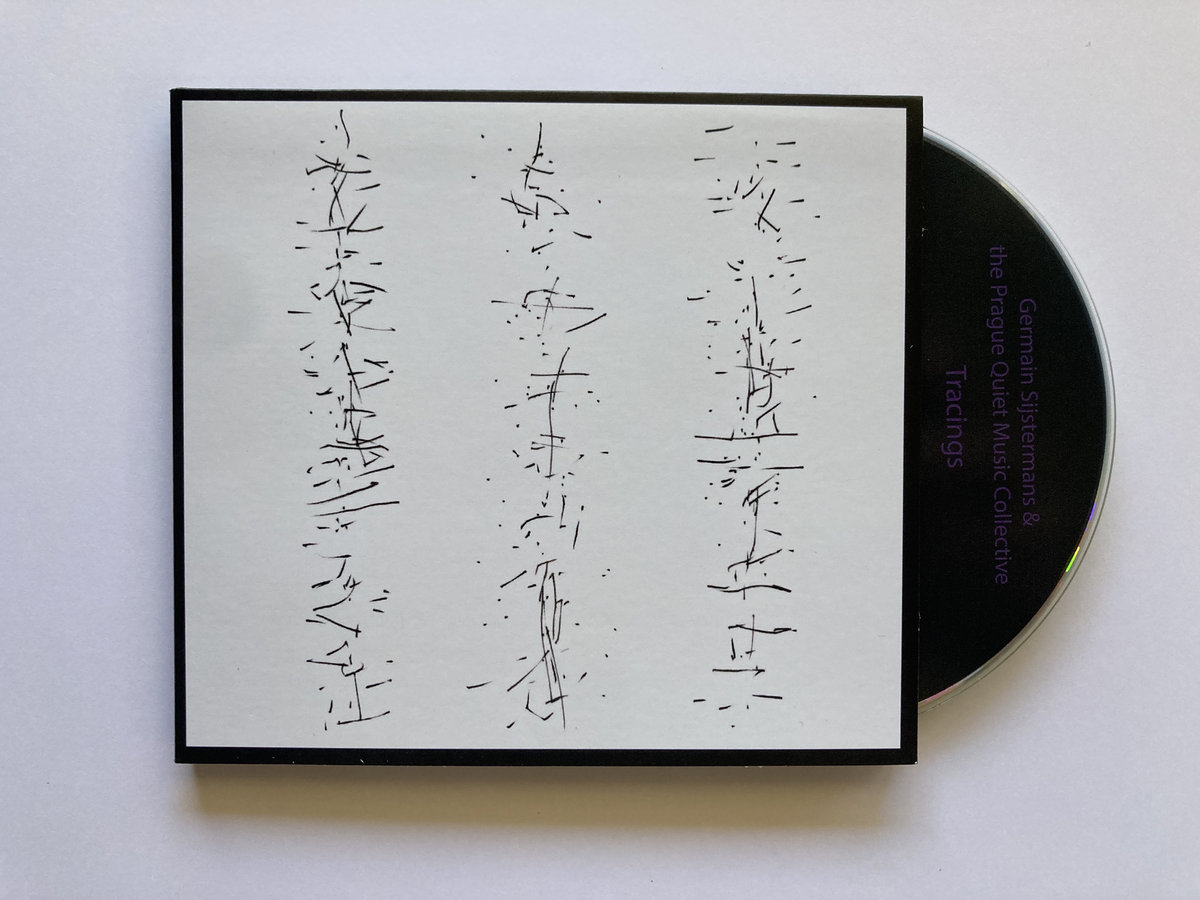 Germain Sijstermans &
the Prague Quiet Music Collective
Tracings